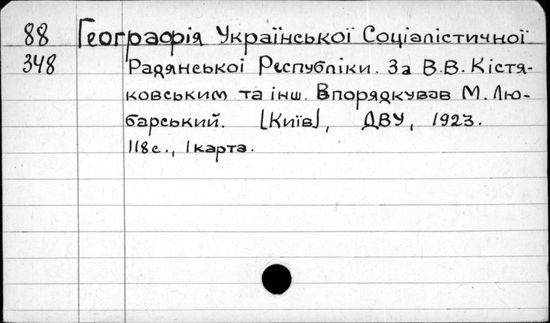 88 Географія Української Соціалістичної
348 Радянської Республіки. За В.В. Кістя-
ковським та інш. Впорядкував М. Лю-
барський. [Київ], ДВУ, 1923.
118с., 1 карта.